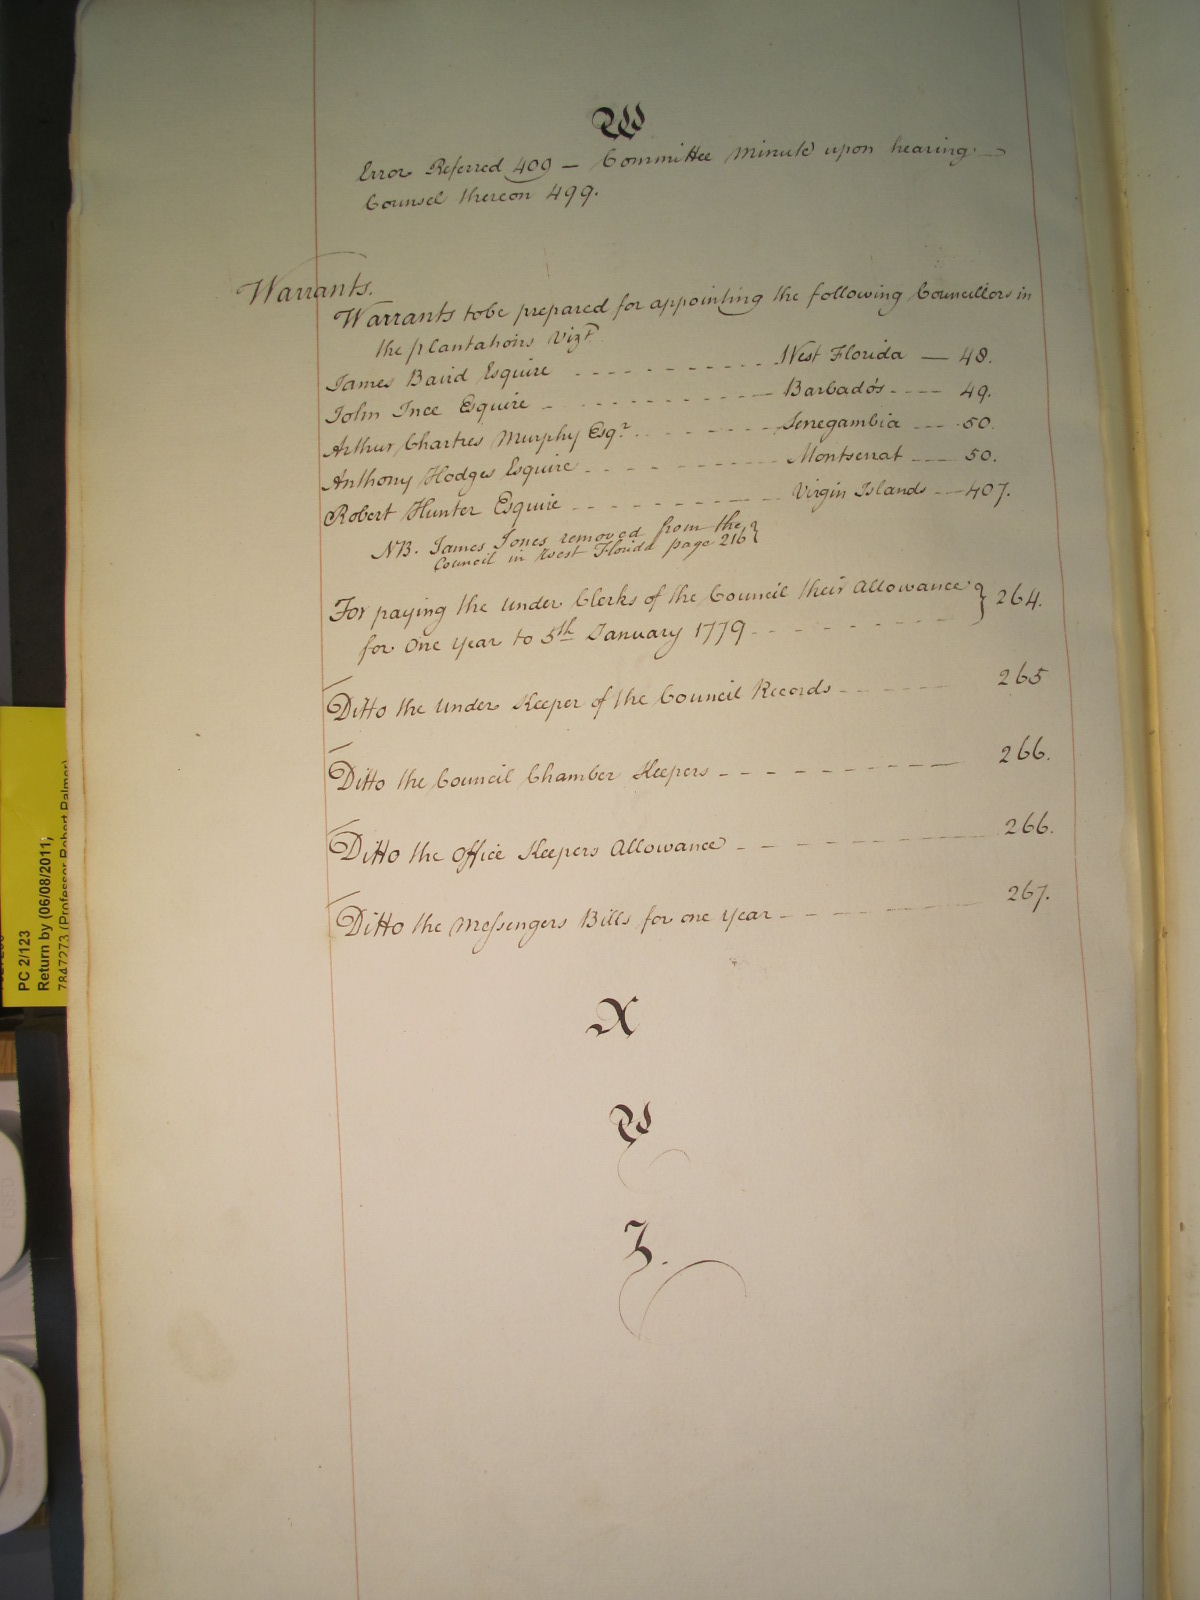 W
Error Referred 409 — Committee Minute upon hearing
Counsel thereon 499.
Warrants.
Warrants to be prepared for appointing the following Councillors in
the plantations Vizt
James Baird Esquire - - - - - - - - - - West Florida — 48.
John Ince Esquire - - - - - - - - - - - Barbados - - - - 49.
Arthur Chartres Murphy Esqr. - - - - - - Senegambia - - - 50.
Anthony Hodges Esquire - - - - - - - - - Montserrat - - - 50.
Robert Hunter Esquire - - - - - - - - - Virgin Islands - - 407.
NB. James Jones removed from the }
Council in West Florida page 216
For paying the under Clerks of the Council their Allowance } 264.
for One Year to 5th January 1779 - - - - - - - -
Ditto the under Keeper of the Council Records - - - - - - 265
Ditto the Council Chamber Keepers - - - - - - - - - 266.
Ditto the Office Keepers Allowance - - - - - - - - - 266.
Ditto the Messengers Bills for one year - - - - - - - 267.
X
Y
Z.
PC 2/123
Return by (06/08/2011;
7847273 (Professor Robert Palmer)